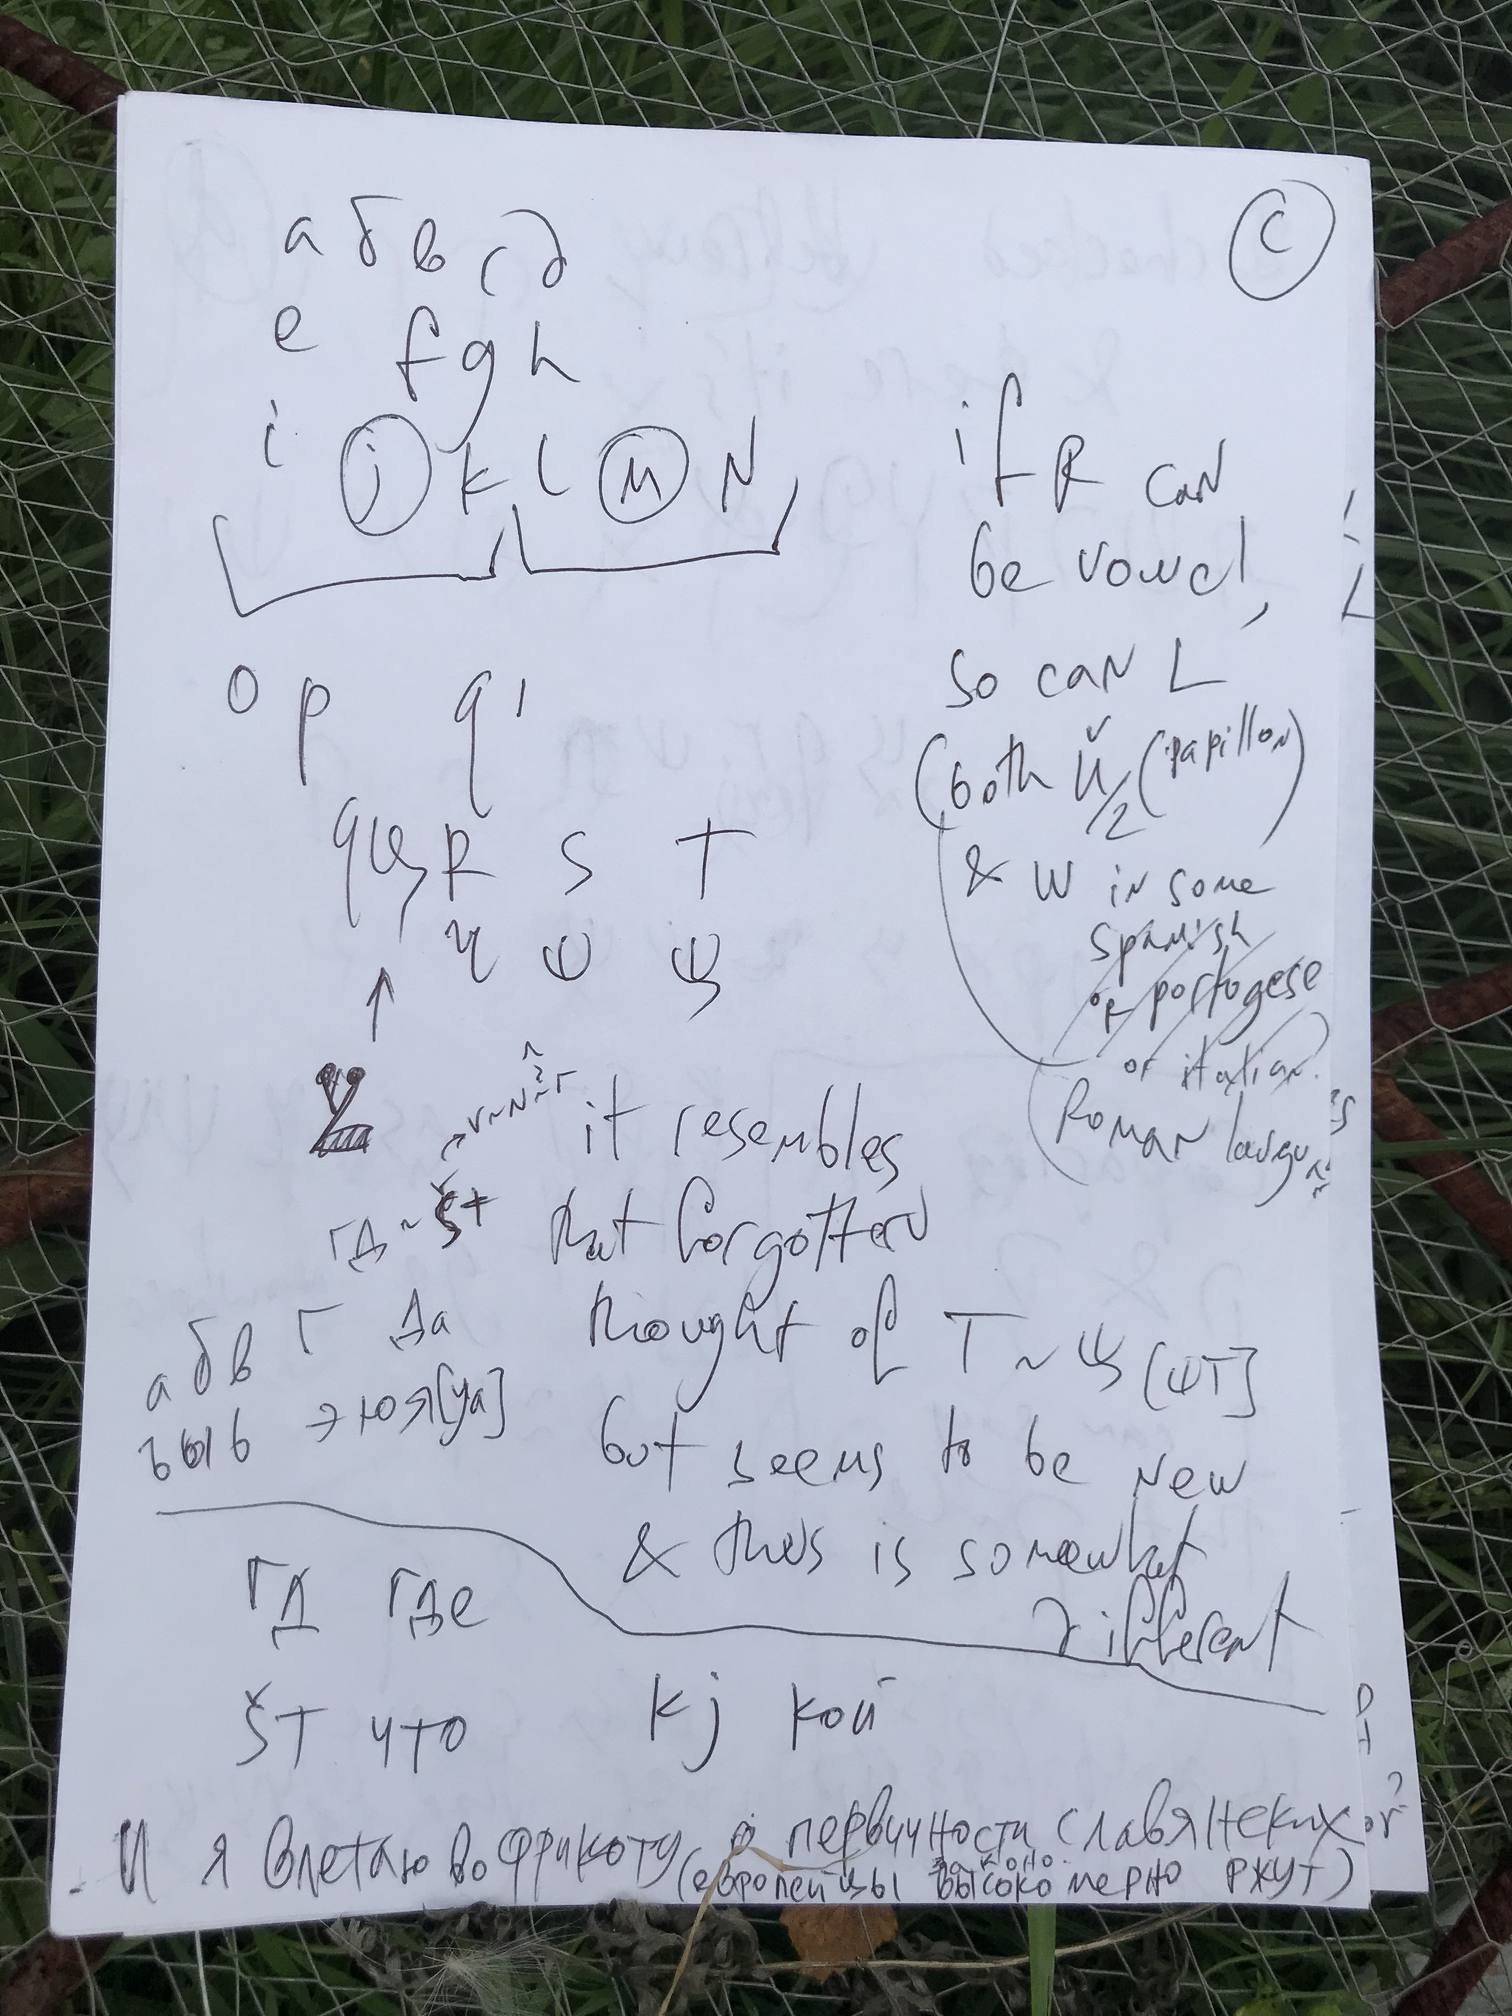 C
а б в c д
e f g h
i j k l м N
if R can
be vowel,
so can L
(both й/2 (papillon)
& W in some
spanish
or portogese
or italian
Roman langu
o p q'
qц R S T
ч ψ
it resembles
that forgotten
thought of T ~ [ψT]
but seems to be new
& thus is somewhat
different
ГД ~ šт
а б в Г Да
ъ ы ь э ю я [уа]
ГД где
šт что
kj кой
И я влетаю во фрикоту о первичности славянских
(европейцы высокомерно ржут)